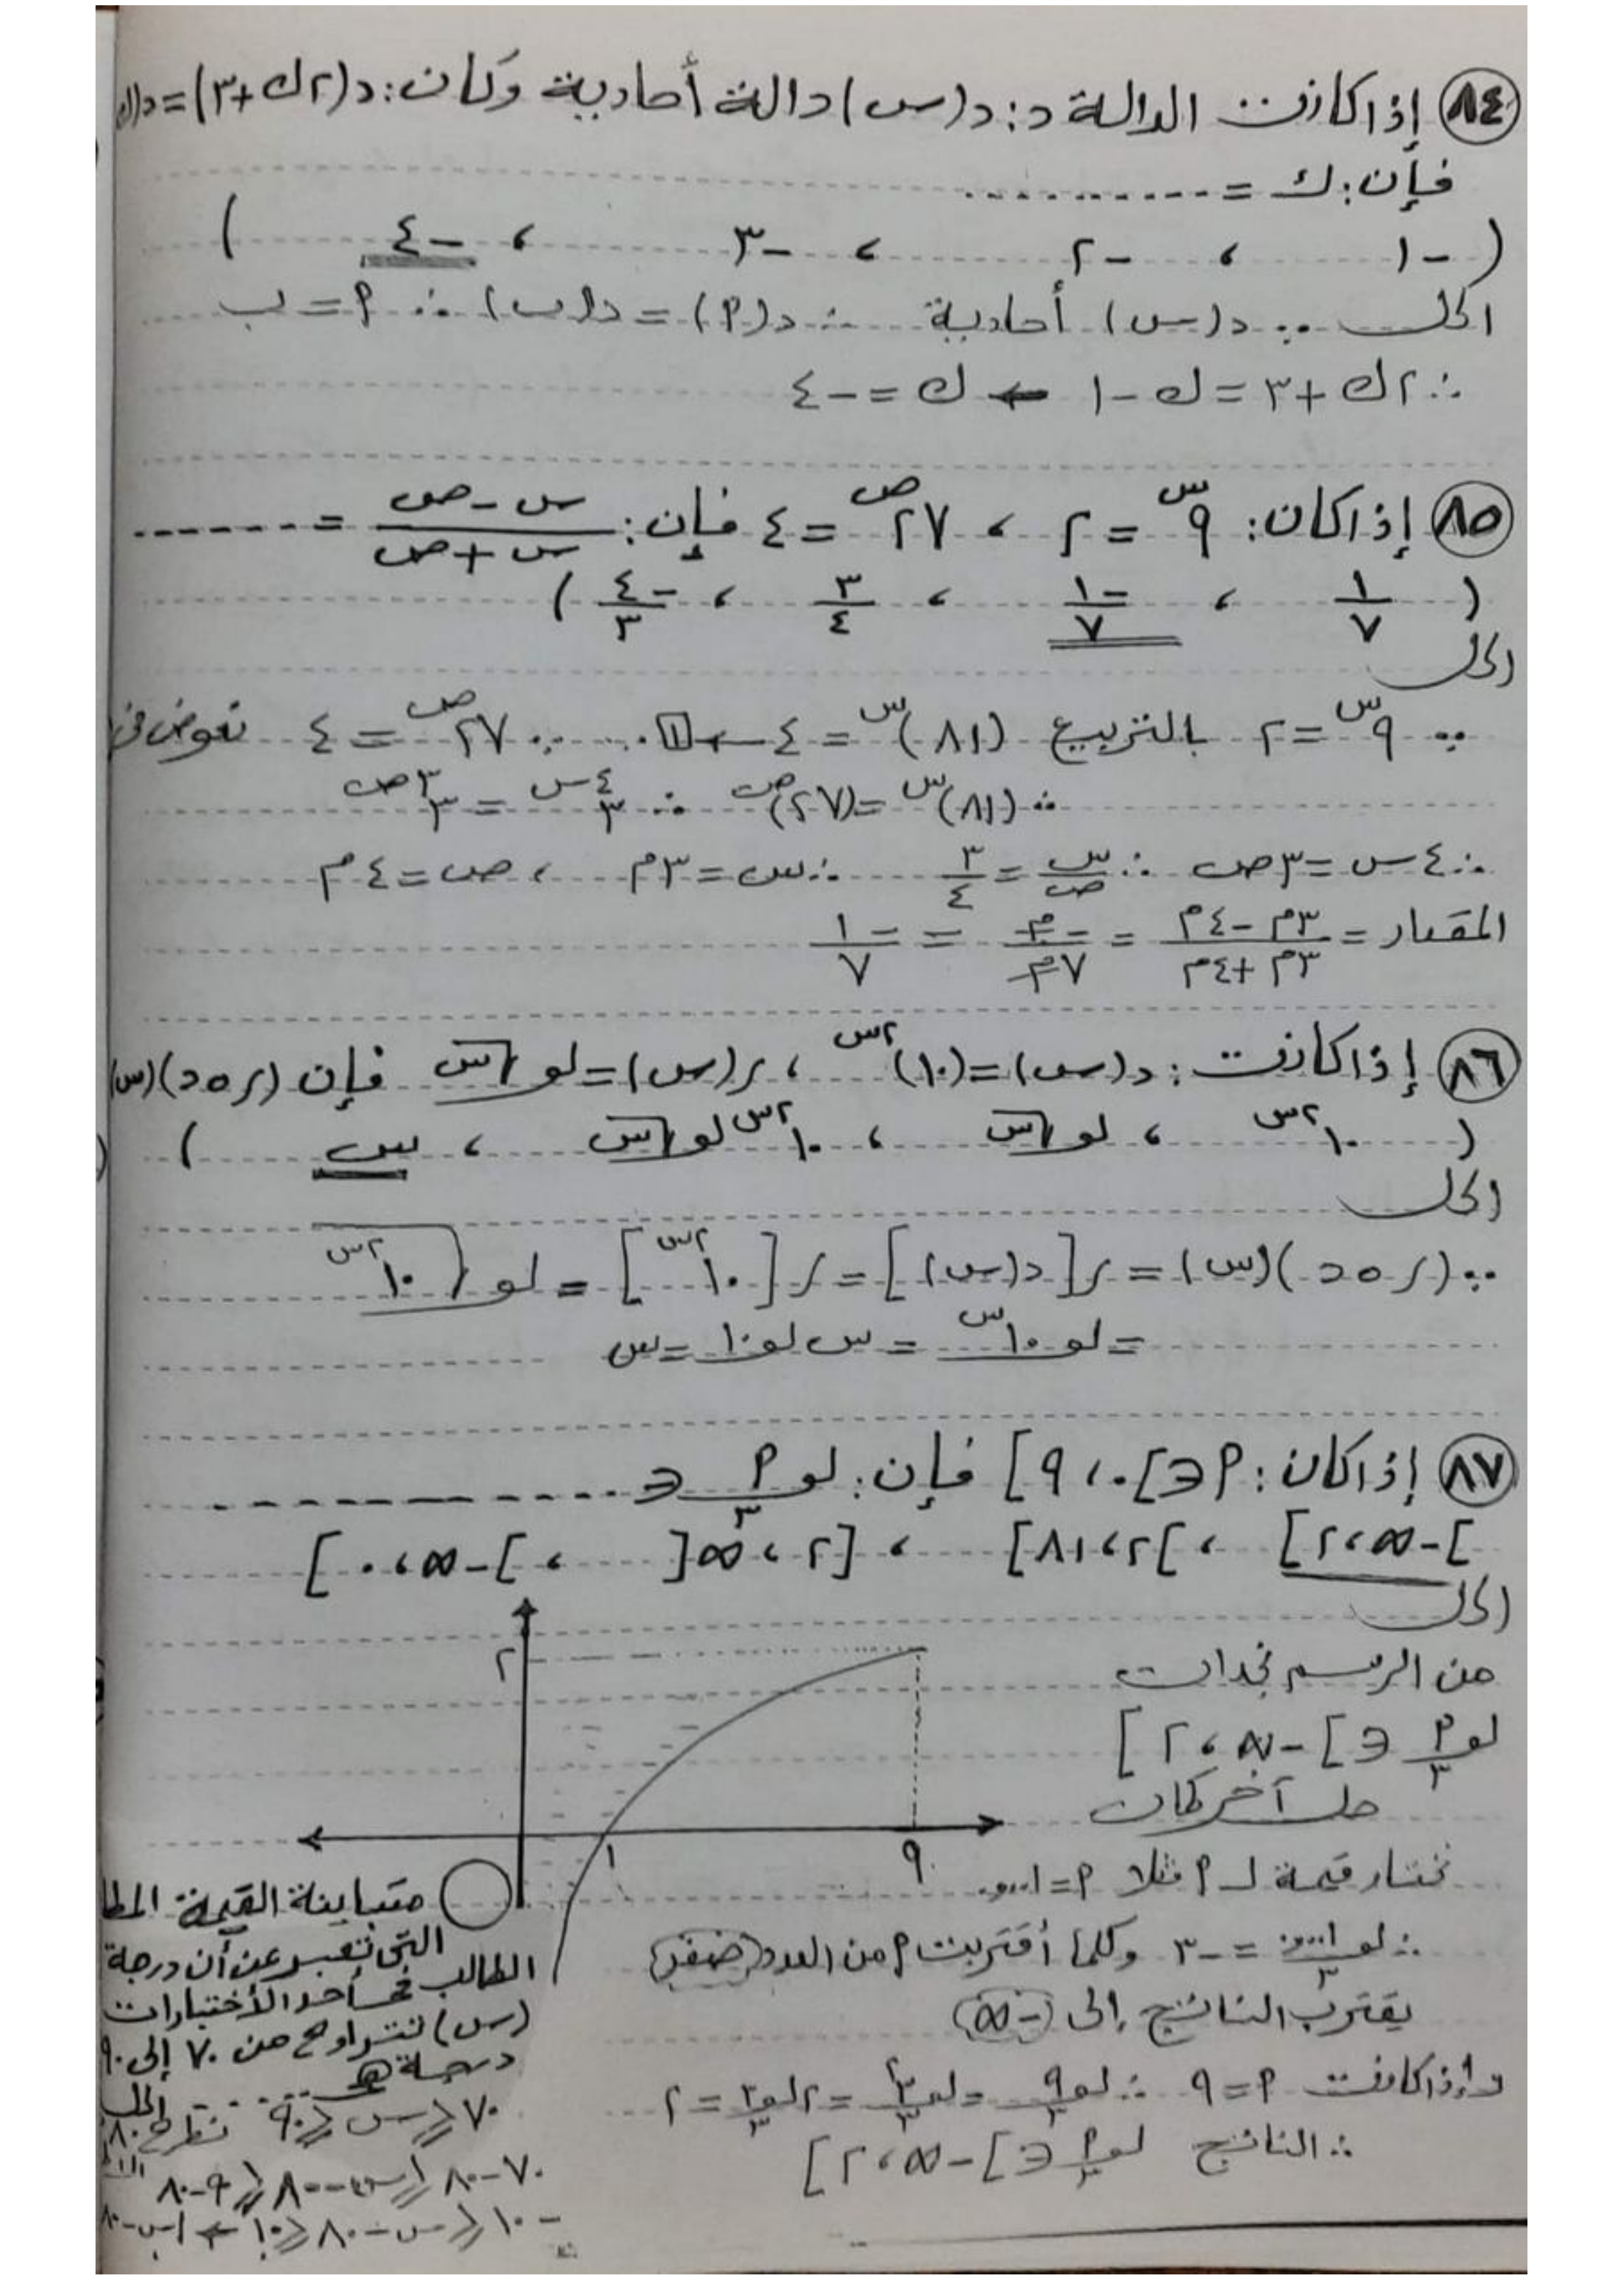 ٨٤ إذا كانت الدالة د: د(س) دالة أحادية وكان: د(٢ك+٣)=د(ك
فإن: ك = ..........
( -١ ، -٢ ، -٣ ، -٤ )
الحل ∵ د(س) أحادية ∴ د(م) = د(ب) ∴ م = ب
∴ ٢ك + ٣ = ك - ١ ← ك = -٤
٨٥ إذا كان: ٩^س = ٢ ، ٢٧^ص = ٤ فإن: (س - ص)/(س + ص) = .......
( ١/٧ ، -١/٧ ، ٣/٤ ، -٤/٣ )
الحل
∵ ٩^س = ٢ بالتربيع (٨١)^س = ٤ ← [١] ∵ ٢٧^ص = ٤ نعوض في
∴ (٨١)^س = (٢٧)^ص ∴ ٣^٤س = ٣^٣ص
∴ ٤س = ٣ص ∴ س/ص = ٣/٤ ∴ س = ٣م ، ص = ٤م
المقدار = (٣م - ٤م)/(٣م + ٤م) = -م/٧م = -١/٧
٨٦ إذا كانت: د(س) = (١٠)^٢س ، ر(س) = لو √س فإن (ر ∘ د)(س)
( ١٠^٢س ، لو √س ، ١٠^٢س لو √س ، س )
الحل
∵ (ر ∘ د)(س) = ر[د(س)] = ر[١٠^٢س] = لو √١٠^٢س
= لو ١٠^س = س لو ١٠ = س
٨٧ إذا كان: م ∈ ]٠ ، ٩[ فإن: لو_٣ م ∈ ..........
]-∞ ، ٢[ ، ]٢ ، ٨١[ ، [٢ ، ∞[ ، ]-∞ ، ٠[
الحل
من الرسم نجد ان
لو_٣ م ∈ ]-∞ ، ٢[
حل آخر كان
٢
١ ٩
نختار قيمة لـ م مثلا م =
∴ لو_٣ = -٣ وكلما أقتربت م من العدد (صفر)
يقترب الناتج إلى (-∞)
وإذا كانت م = ٩ ∴ لو_٣ ٩ = لو_٣ ٣^٢ = ٢ لو_٣ ٣ = ٢
∴ الناتج لو_٣ م ∈ ]-∞ ، ٢[
متباينة القيمة المطا
التي تعبر عن أن درجة
الطالب في أحد الأختبارات
(س) تتراوح من ٧٠ إلى ٩٠
درجة هي ......
الحل
٧٠ ≤ س ≤ ٩٠ نطرح ٨٠
٧٠-٨٠ ≤ س-٨٠ ≤ ٩٠-٨٠
-١٠ ≤ س-٨٠ ≤ ١٠ ← |س-٨٠